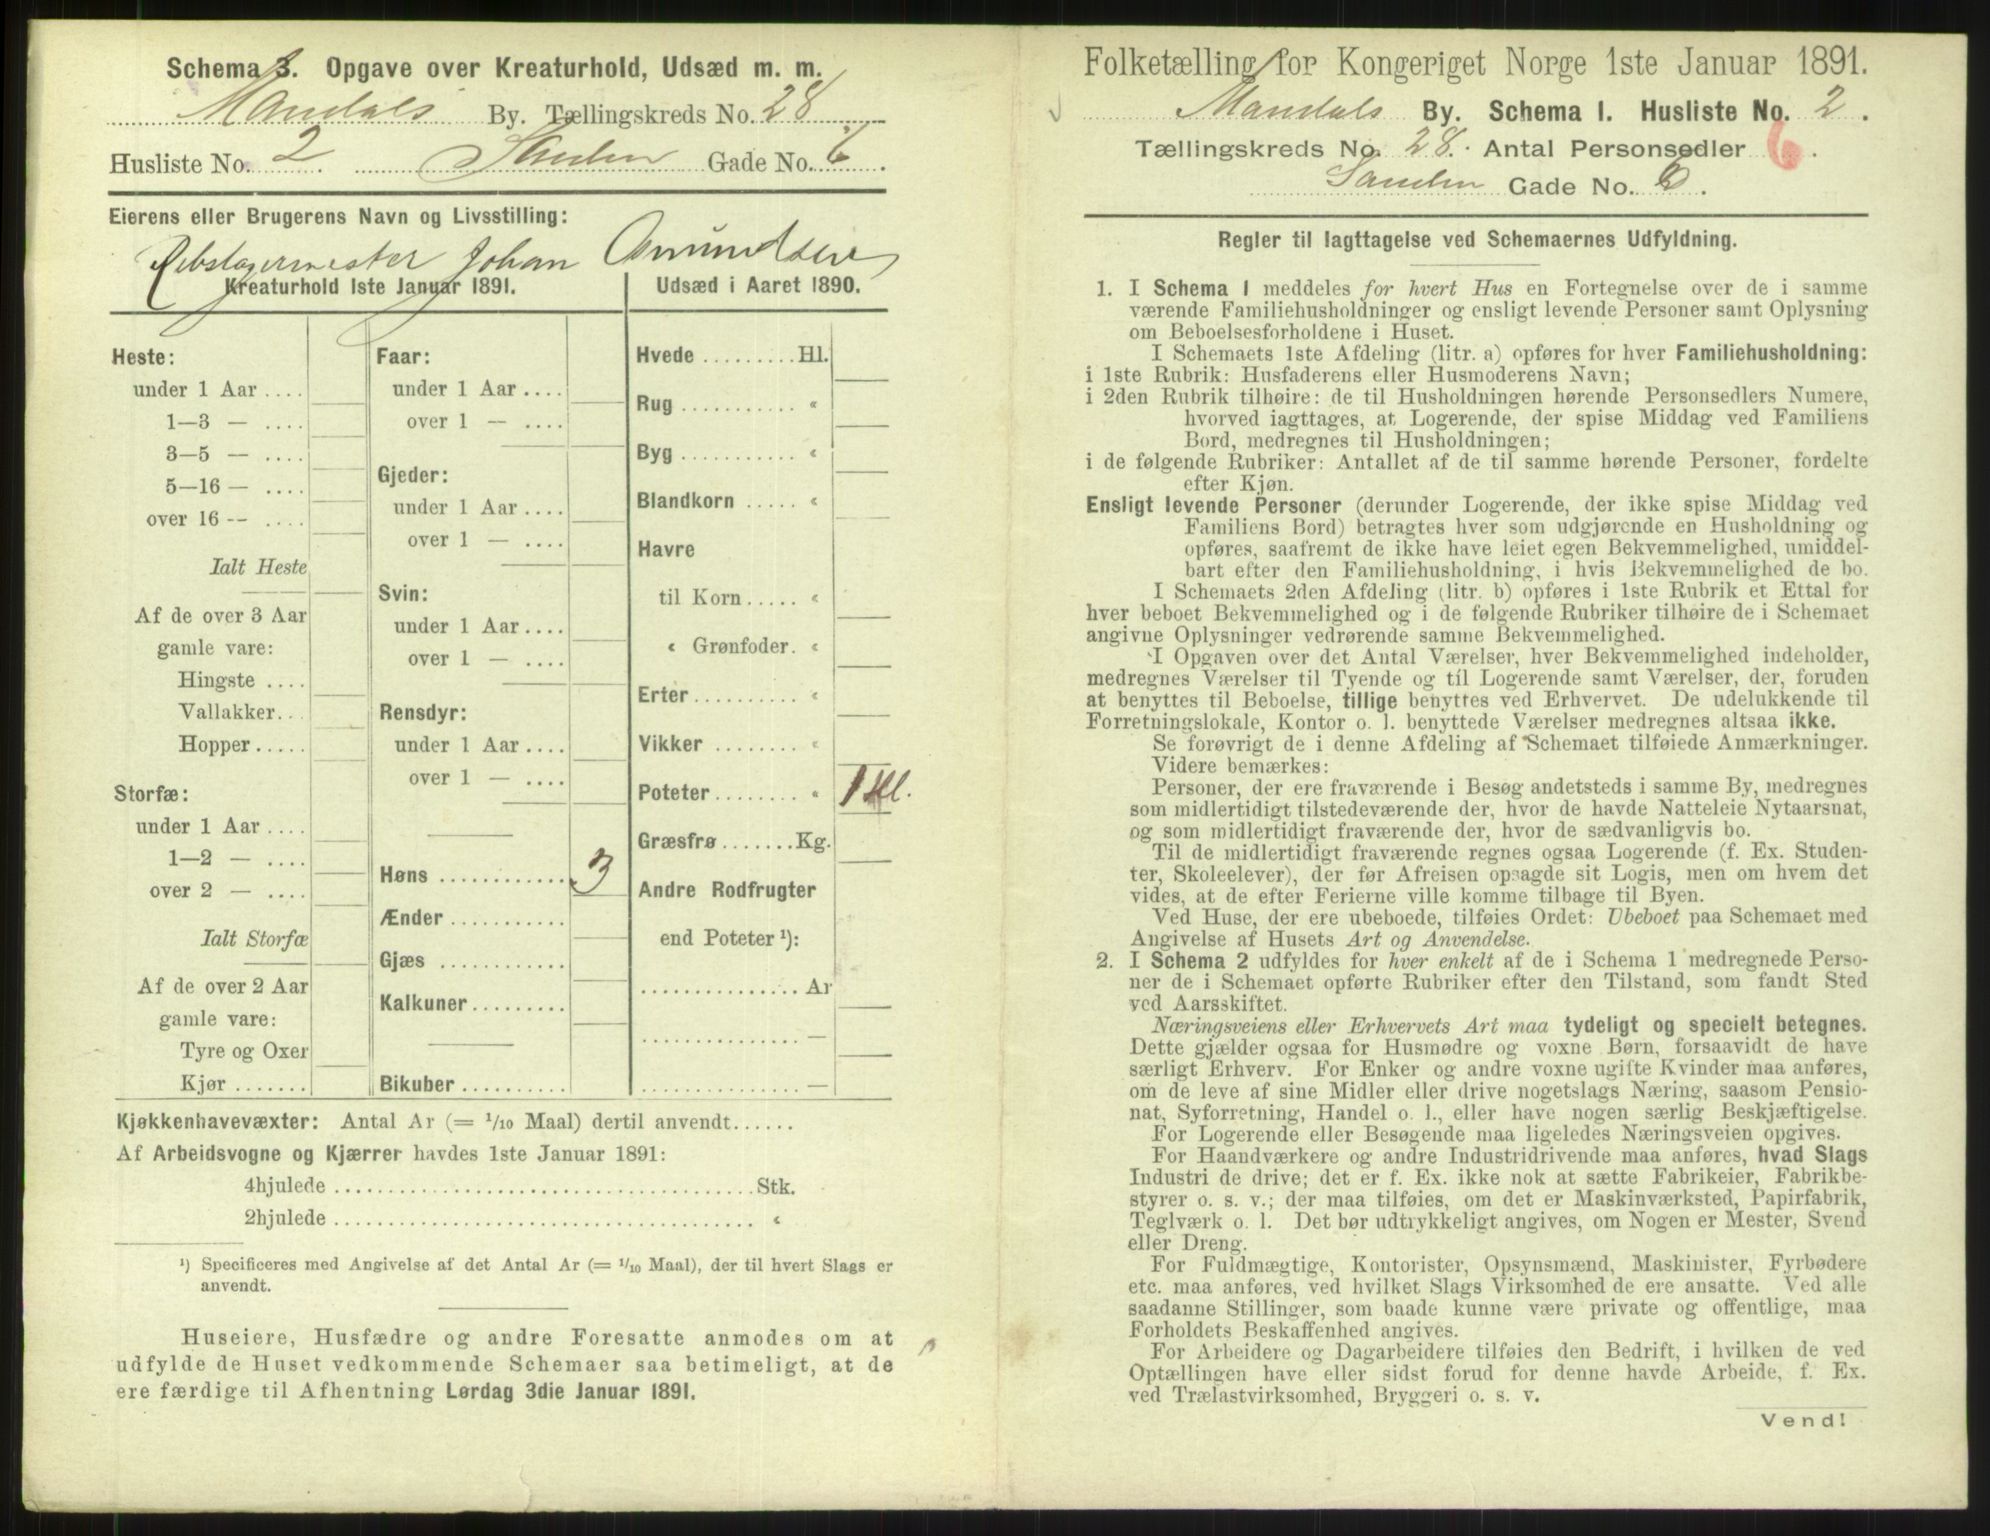 Schema 3. Opgave over Kreaturhold, Udsæd m. m.
Mandals By. Tællingskreds No. 28
Husliste No. 2. Sanden Gade No. 6.
Eierens eller Brugerens Navn og Livsstilling:
Rebslagermester Johan Amundsen
Kreaturhold 1ste Januar 1891.
Heste:
under 1 Aar ....
1—3 — ....
3—5 — ....
5—16 — ....
over 16 -- ....
Ialt Heste
Af de over 3 Aar
gamle vare:
Hingste ....
Vallakker...
Hopper.....
Storfæ:
under 1 Aar ....
1—2 — ....
over 2 — ....
Ialt Storfæ
Af de over 2 Aar
gamle vare:
Tyre og Oxer
Kjør.......
Faar:
under 1 Aar ....
over 1 — ....
Gjeder:
under 1 Aar ....
over 1 — ....
Svin:
under 1 Aar ....
over 1 — ....
Rensdyr:
under 1 Aar ....
over 1 — ....
Høns ............ 3
Ænder ...........
Gjæs ............
Kalkuner.........
Bikuber ..........
Udsæd i Aaret 1890.
Hvede ......... Hl.
Rug ........... «
Byg ........... «
Blandkorn ..... «
Havre
til Korn..... «
« Grønfoder. «
Erter .......... «
Vikker ......... «
Poteter........ « 1 Hl.
Græsfrø .......Kg.
Andre Rodfrugter
end Poteter ¹):
............... Ar
............... —
............... —
Kjøkkenhavevæxter: Antal Ar (= 1/10 Maal) dertil anvendt......
Af Arbeidsvogne og Kjærrer havdes 1ste Januar 1891:
4hjulede ................................ Stk.
2hjulede ................................ «
¹) Specificeres med Angivelse af det Antal Ar (= 1/10 Maal), der til hvert Slags er
anvendt.
Huseiere, Husfædre og andre Foresatte anmodes om at
udfylde de Huset vedkommende Schemaer saa betimeligt, at de
ere færdige til Afhentning Lørdag 3die Januar 1891.
Folketælling for Kongeriget Norge 1ste Januar 1891.
Mandals By. Schema I. Husliste No. 2.
Tællingskreds No. 28. Antal Personsedler 6.
Sanden Gade No. 6.
Regler til Iagttagelse ved Schemaernes Udfyldning.
1. I Schema I meddeles for hvert Hus en Fortegnelse over de i samme
værende Familiehusholdninger og ensligt levende Personer samt Oplysning
om Beboelsesforholdene i Huset.
I Schemaets 1ste Afdeling (litr. a) opføres for hver Familiehusholdning:
i 1ste Rubrik: Husfaderens eller Husmoderens Navn;
i 2den Rubrik tilhøire: de til Husholdningen hørende Personsedlers Numere,
hvorved iagttages, at Logerende, der spise Middag ved Familiens
Bord, medregnes til Husholdningen;
i de følgende Rubriker: Antallet af de til samme hørende Personer, fordelte
efter Kjøn.
Ensligt levende Personer (derunder Logerende, der ikke spise Middag ved
Familiens Bord) betragtes hver som udgjørende en Husholdning og
opføres, saafremt de ikke have leiet egen Bekvemmelighed, umiddel-
bart efter den Familiehusholdning, i hvis Bekvemmelighed de bo.
I Schemaets 2den Afdeling (litr. b) opføres i 1ste Rubrik et Ettal for
hver beboet Bekvemmelighed og i de følgende Rubriker tilhøire de i Schemaet
angivne Oplysninger vedrørende samme Bekvemmelighed.
I Opgaven over det Antal Værelser, hver Bekvemmelighed indeholder,
medregnes Værelser til Tyende og til Logerende samt Værelser, der, foruden
at benyttes til Beboelse, tillige benyttes ved Erhvervet. De udelukkende til
Forretningslokale, Kontor o. l. benyttede Værelser medregnes altsaa ikke.
Se forøvrigt de i denne Afdeling af Schemaet tilføiede Anmærkninger.
Videre bemærkes:
Personer, der ere fraværende i Besøg andetsteds i samme By, medregnes
som midlertidigt tilstedeværende der, hvor de havde Natteleie Nytaarsnat,
og som midlertidigt fraværende der, hvor de sædvanligvis bo.
Til de midlertidigt fraværende regnes ogsaa Logerende (f. Ex. Studen-
ter, Skoleelever), der før Afreisen opsagde sit Logis, men om hvem det
vides, at de efter Ferierne ville komme tilbage til Byen.
Ved Huse, der ere ubeboede, tilføies Ordet: Ubeboet paa Schemaet med
Angivelse af Husets Art og Anvendelse.
2. I Schema 2 udfyldes for hver enkelt af de i Schema 1 medregnede Perso-
ner de i Schemaet opførte Rubriker efter den Tilstand, som fandt Sted
ved Aarsskiftet.
Næringsveiens eller Erhvervets Art maa tydeligt og specielt betegnes.
Dette gjælder ogsaa for Husmødre og voxne Børn, forsaavidt de have
særligt Erhverv. For Enker og andre voxne ugifte Kvinder maa anføres,
om de leve af sine Midler eller drive nogetslags Næring, saasom Pensio-
nat, Syforretning, Handel o. l., eller have nogen særlig Beskjæftigelse.
For Logerende eller Besøgende maa ligeledes Næringsveien opgives.
For Haandværkere og andre Industridrivende maa anføres, hvad Slags
Industri de drive; det er f. Ex. ikke nok at sætte Fabrikeier, Fabrikbe-
styrer o. s. v.; der maa tilføies, om det er Maskinværksted, Papirfabrik,
Teglværk o. l. Det bør udtrykkeligt angives, om Nogen er Mester, Svend
eller Dreng.
For Fuldmægtige, Kontorister, Opsynsmænd, Maskinister, Fyrbødere
etc. maa anføres, ved hvilket Slags Virksomhed de ere ansatte. Ved alle
saadanne Stillinger, som baade kunne være private og offentlige, maa
Forholdets Beskaffenhed angives.
For Arbeidere og Dagarbeidere tilføies den Bedrift, i hvilken de ved
Optællingen have eller sidst forud for denne havde Arbeide, f. Ex.
ved Trælastvirksomhed, Bryggeri o. s. v.
Vend!